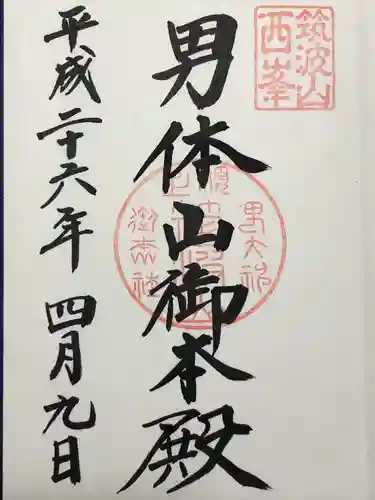 筑波山
西峯
男体山御本殿
平成二十六年 四月九日